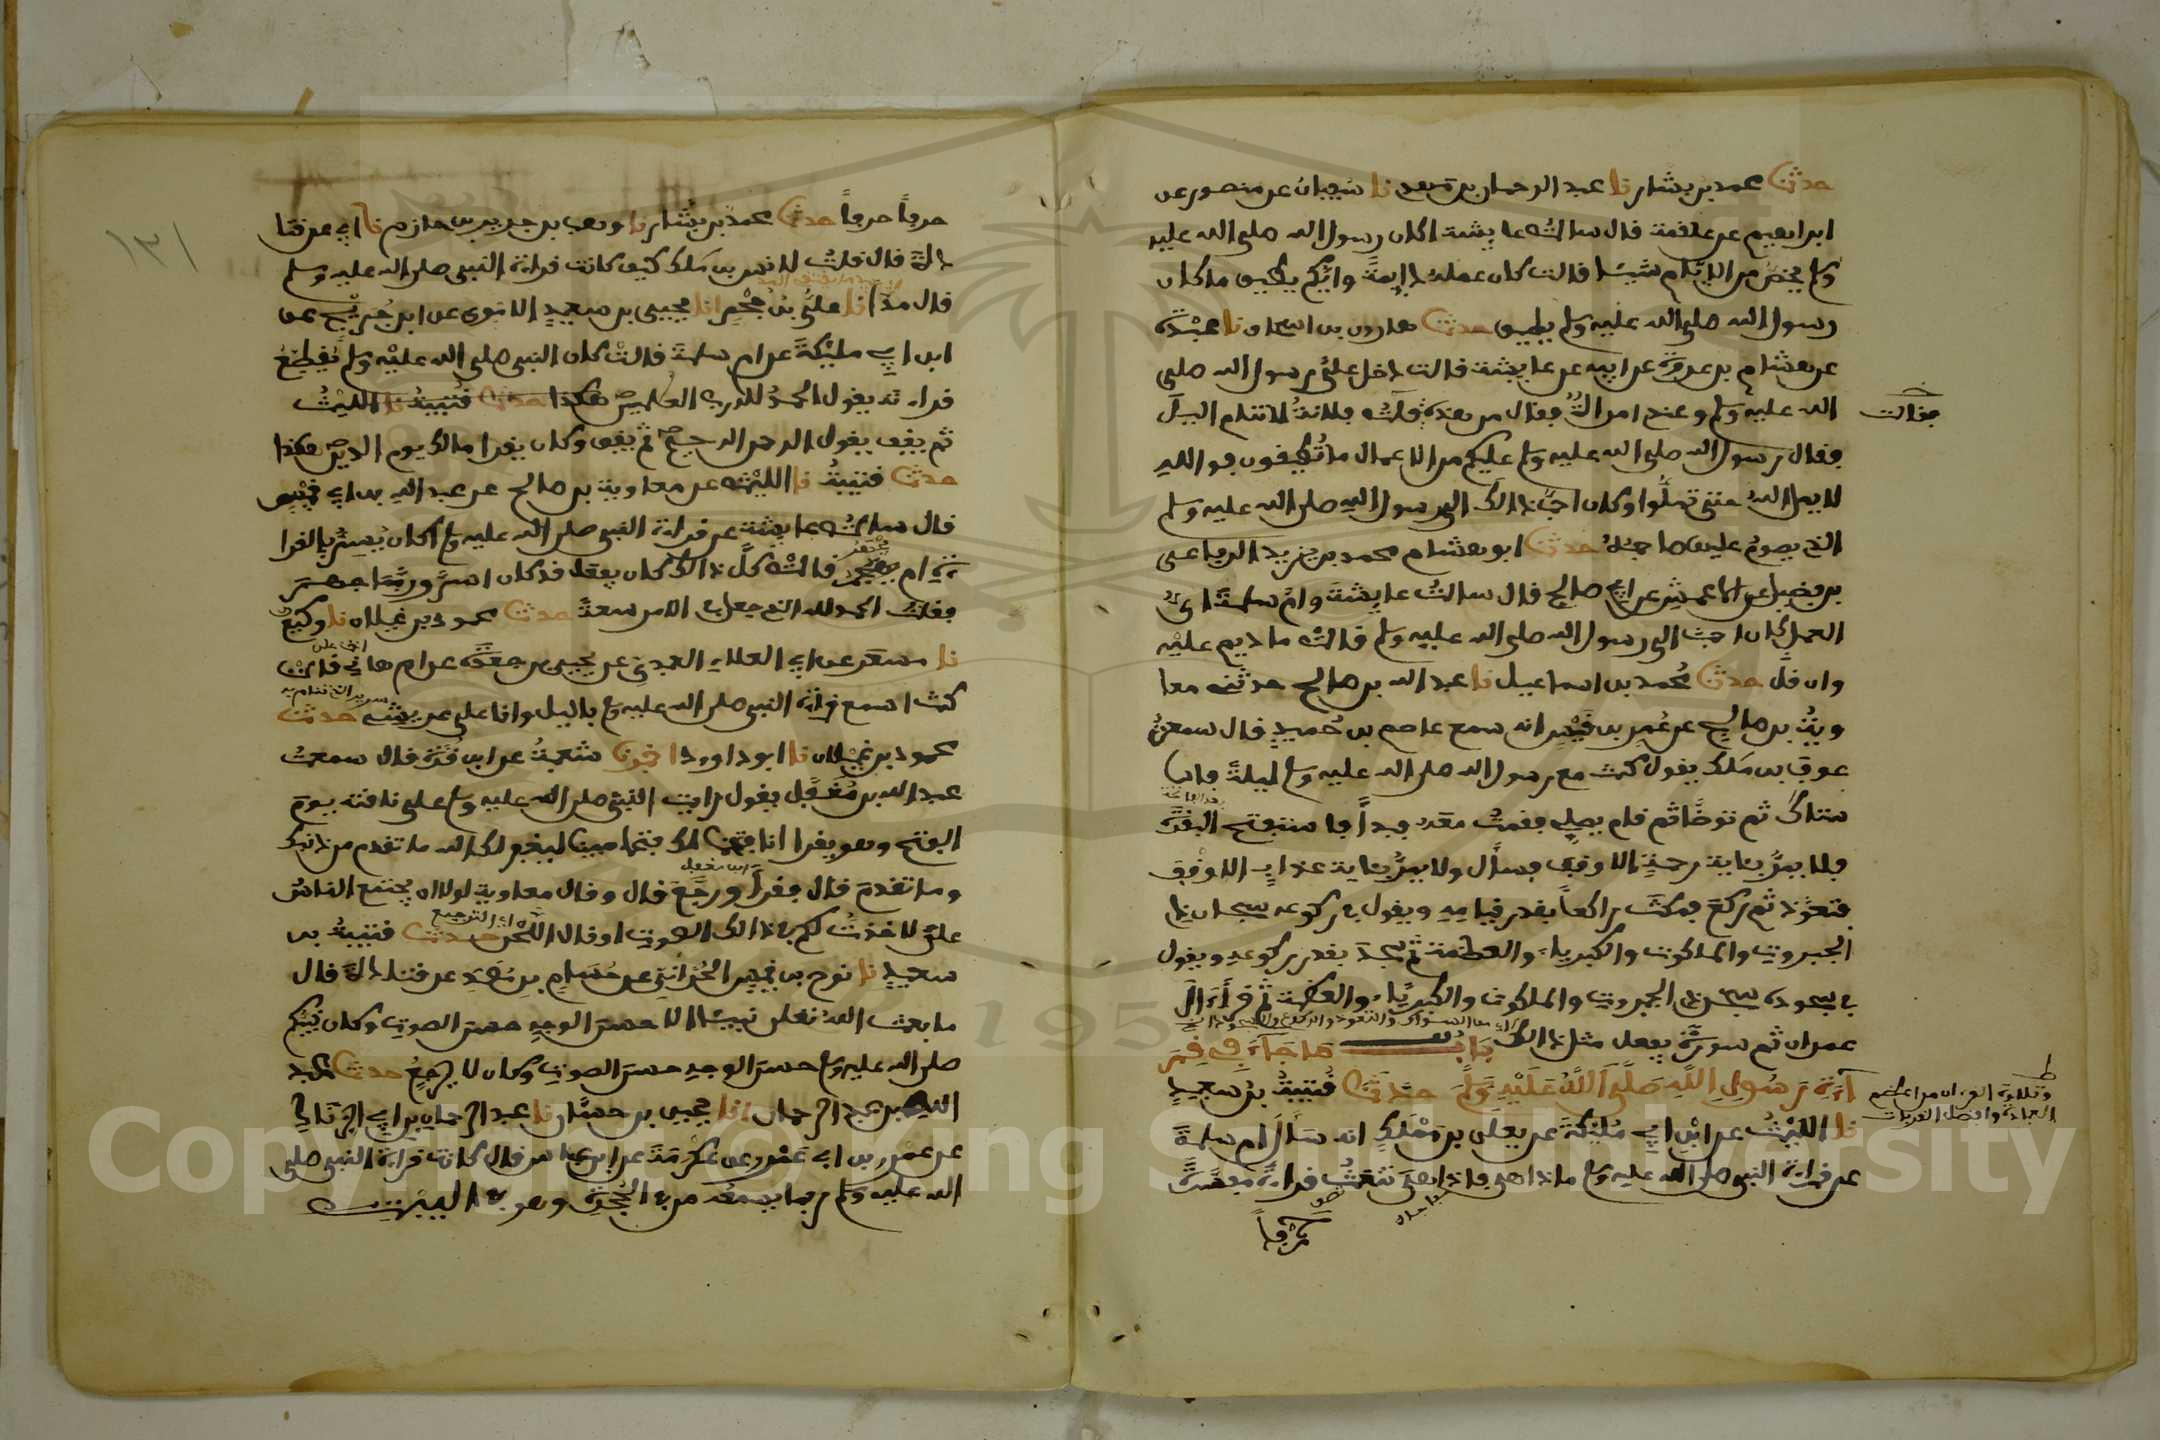 حدثنا محمد بن بشار نا عبد الرحمان بن مهدي نا سفيان عن منصور عن
ابراهيم عن علقمة قال سالت عايشة اكان رسول الله صلى الله عليه
وسلم يخص من الايام شيئا قالت كان عمله ديمة وايكم يطيق ما كان
رسول الله صلى الله عليه وسلم يطيق حدثنا هارون بن اسحاق نا عبدة
عن هشام بن عروة عن ابيه عن عايشة قالت دخل علي رسول الله صلى
الله عليه وسلم وعندي امراة فقال من هذه قلت فلانة لا تنام اليل
فقالت
فقال رسول الله صلى الله عليه وسلم عليكم من الاعمال ما تطيقون فوالله
لا يمل الله حتى تملوا وكان احب ذالك الى رسول الله صلى الله عليه وسلم
الذي يدوم عليه صاحبه حدثنا ابو هشام محمد بن يزيد الرفاعي
بن فضيل عن الاعمش عن ابي صالح قال سالت عايشة وام سلمة اي
العمل كان احب الى رسول الله صلى الله عليه وسلم قالت ما ديم عليه
وان قل حدثنا محمد بن اسماعيل نا عبد الله بن صالح حدثني معا
وية بن صالح عن عمر بن قيس انه سمع عاصم بن حميد قال سمعت
عوف بن ملك يقول كنت مع رسول الله صلى الله عليه وسلم ليلة فا
ستاك ثم توضا ثم قام يصلي فقمت معه فبدا فاستفتح البقرة
فلا يمر بءاية رحمة الا وقف فسال ولا يمر بءاية عذاب الا وقف
فتعوذ ثم ركع فمكث راكعا بقدر قيامه ويقول في ركوعه سبحان ذي
الجبروت والملكوت والكبرياء والعظمة ثم سجد بقدر ركوعه ويقول
في سجوده سبحان ذي الجبروت والملكوت والكبرياء والعظمة ثم قرا ءال
عمران ثم سورة يفعل مثل ذالك باب ما جاء في قر
اءة رسول الله صلى الله عليه وسلم حدثنا قتيبة بن سعيد
وتلاوة القرءان من اعظم
العبادة وافضل القربات
نا الليث عن ابن ابي مليكة عن يعلى بن مملك انه سال ام سلمة
عن قراءة النبي صلى الله عليه وسلم ماذا هي فاذا هي تنعت قراءة مفسرة
حرفا
١٣١
حرفا حرفا حدثنا محمد بن بشار نا وهب بن جرير بن حازم نا ابي عن قتا
دة قال قلت لانس بن ملك كيف كانت قراءة النبي صلى الله عليه وسلم
قال مدا نا علي بن حجر انا يحيى بن سعيد الاموي عن ابن جريج عن
ابن ابي مليكة عن ام سلمة قالت كان النبي صلى الله عليه وسلم يقطع
قراءته يقول الحمد لله رب العالمين هكذا حدثنا قتيبة نا الليث
ثم يقف يقول الرحمن الرحيم ثم يقف وكان يقرا مالك يوم الدين هكذا
حدثنا قتيبة نا الليث عن معاوية بن صالح عن عبد الله بن ابي قيس
قال سالت عايشة عن قراءة النبي صلى الله عليه وسلم اكان يسر بالقرا
ءة ام يجهر قالت كل ذالك كان يفعل قد كان اسر وربما جهر
فقلت الحمد لله الذي جعل في الامر سعة حدثنا محمود بن غيلان نا وكيع
نا مسعر عن ابي العلاء العبدي عن يحيى بن جعدة عن ام هانئ قالت
كنت اسمع قراءة النبي صلى الله عليه وسلم باليل وانا على عريشي حدثنا
محمود بن غيلان نا ابو داوود اخبرنا شعبة عن ابن قرة قال سمعت
عبد الله بن مغفل يقول رايت النبي صلى الله عليه وسلم على ناقته يوم
الفتح وهو يقرا انا فتحنا لك فتحا مبينا ليغفر لك الله ما تقدم من ذنبك
ابن مغفل
وما تاخر قال فقرا ورجع قال وقال معاوية لولا ان يجتمع الناس
علي لاخذت لكم في ذالك الصوت او قال اللحن حدثنا قتيبة بن
سعيد نا نوح بن قيس الحداني عن حسام بن مصك عن قتادة قال
ما بعث الله تعلى نبيئا الا حسن الوجه حسن الصوت وكان نبيكم
صلى الله عليه وسلم حسن الوجه حسن الصوت وكان لا يرجع حدثنا عبد
الله بن عبد الرحمان انا يحيى بن حسان نا عبد الرحمان بن ابي الزناد
عن عمرو بن ابي عمرو عن عكرمة عن ابن عباس قال كانت قراءة النبي صلى
الله عليه وسلم ربما يسمعه من في الحجرة وهو في البيت
Copyright © King Saud University
195